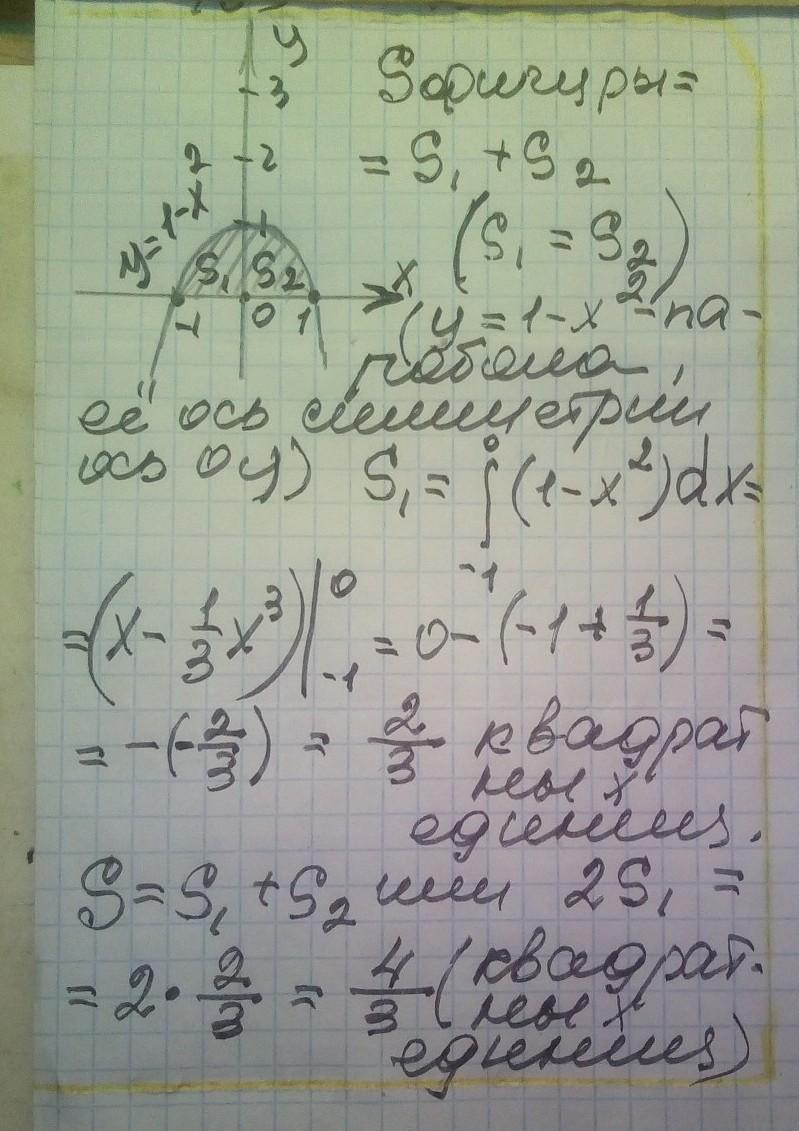 y
3
2
2
1
y=1-x
S₁ S₂
x
-1 0 1
Sфигуры=
= S₁ + S₂
(S₁ = S₂)
(y = 1 - x² - па-
рабола,
её ось симметрии
ось Oy) S₁ = ∫₋₁⁰ (1-x²)dx=
=(x - 1/3 x³)|₋₁⁰ = 0-(-1+1/3) =
= -(-2/3) = 2/3 квадрат
ных
единиц.
S = S₁ + S₂ или 2S₁ =
= 2 · 2/3 = 4/3 (квадрат-
ных
единиц)